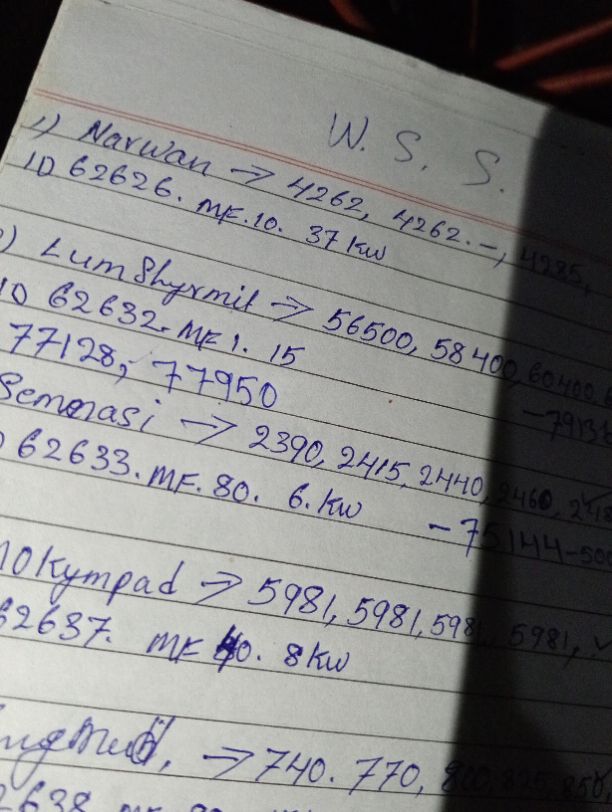 W. S. S.
1) Narwan → 4262, 4262.-, 4285,
ID 62626. MF.10. 37 kw
) Lumshyrmit → 56500, 58400, 60400.
ID 62632. MF 1. 15
77128, 77950 - 7913
Semmasi → 2390, 2415, 2440, 2460,
62633. MF. 80. 6. kw - 75144-500
Mokympad → 5981, 5981, 5981, 5981, ✓
62637. MF 40. 8 kw
→ 740. 770, 800, 825, 850
2638. MF